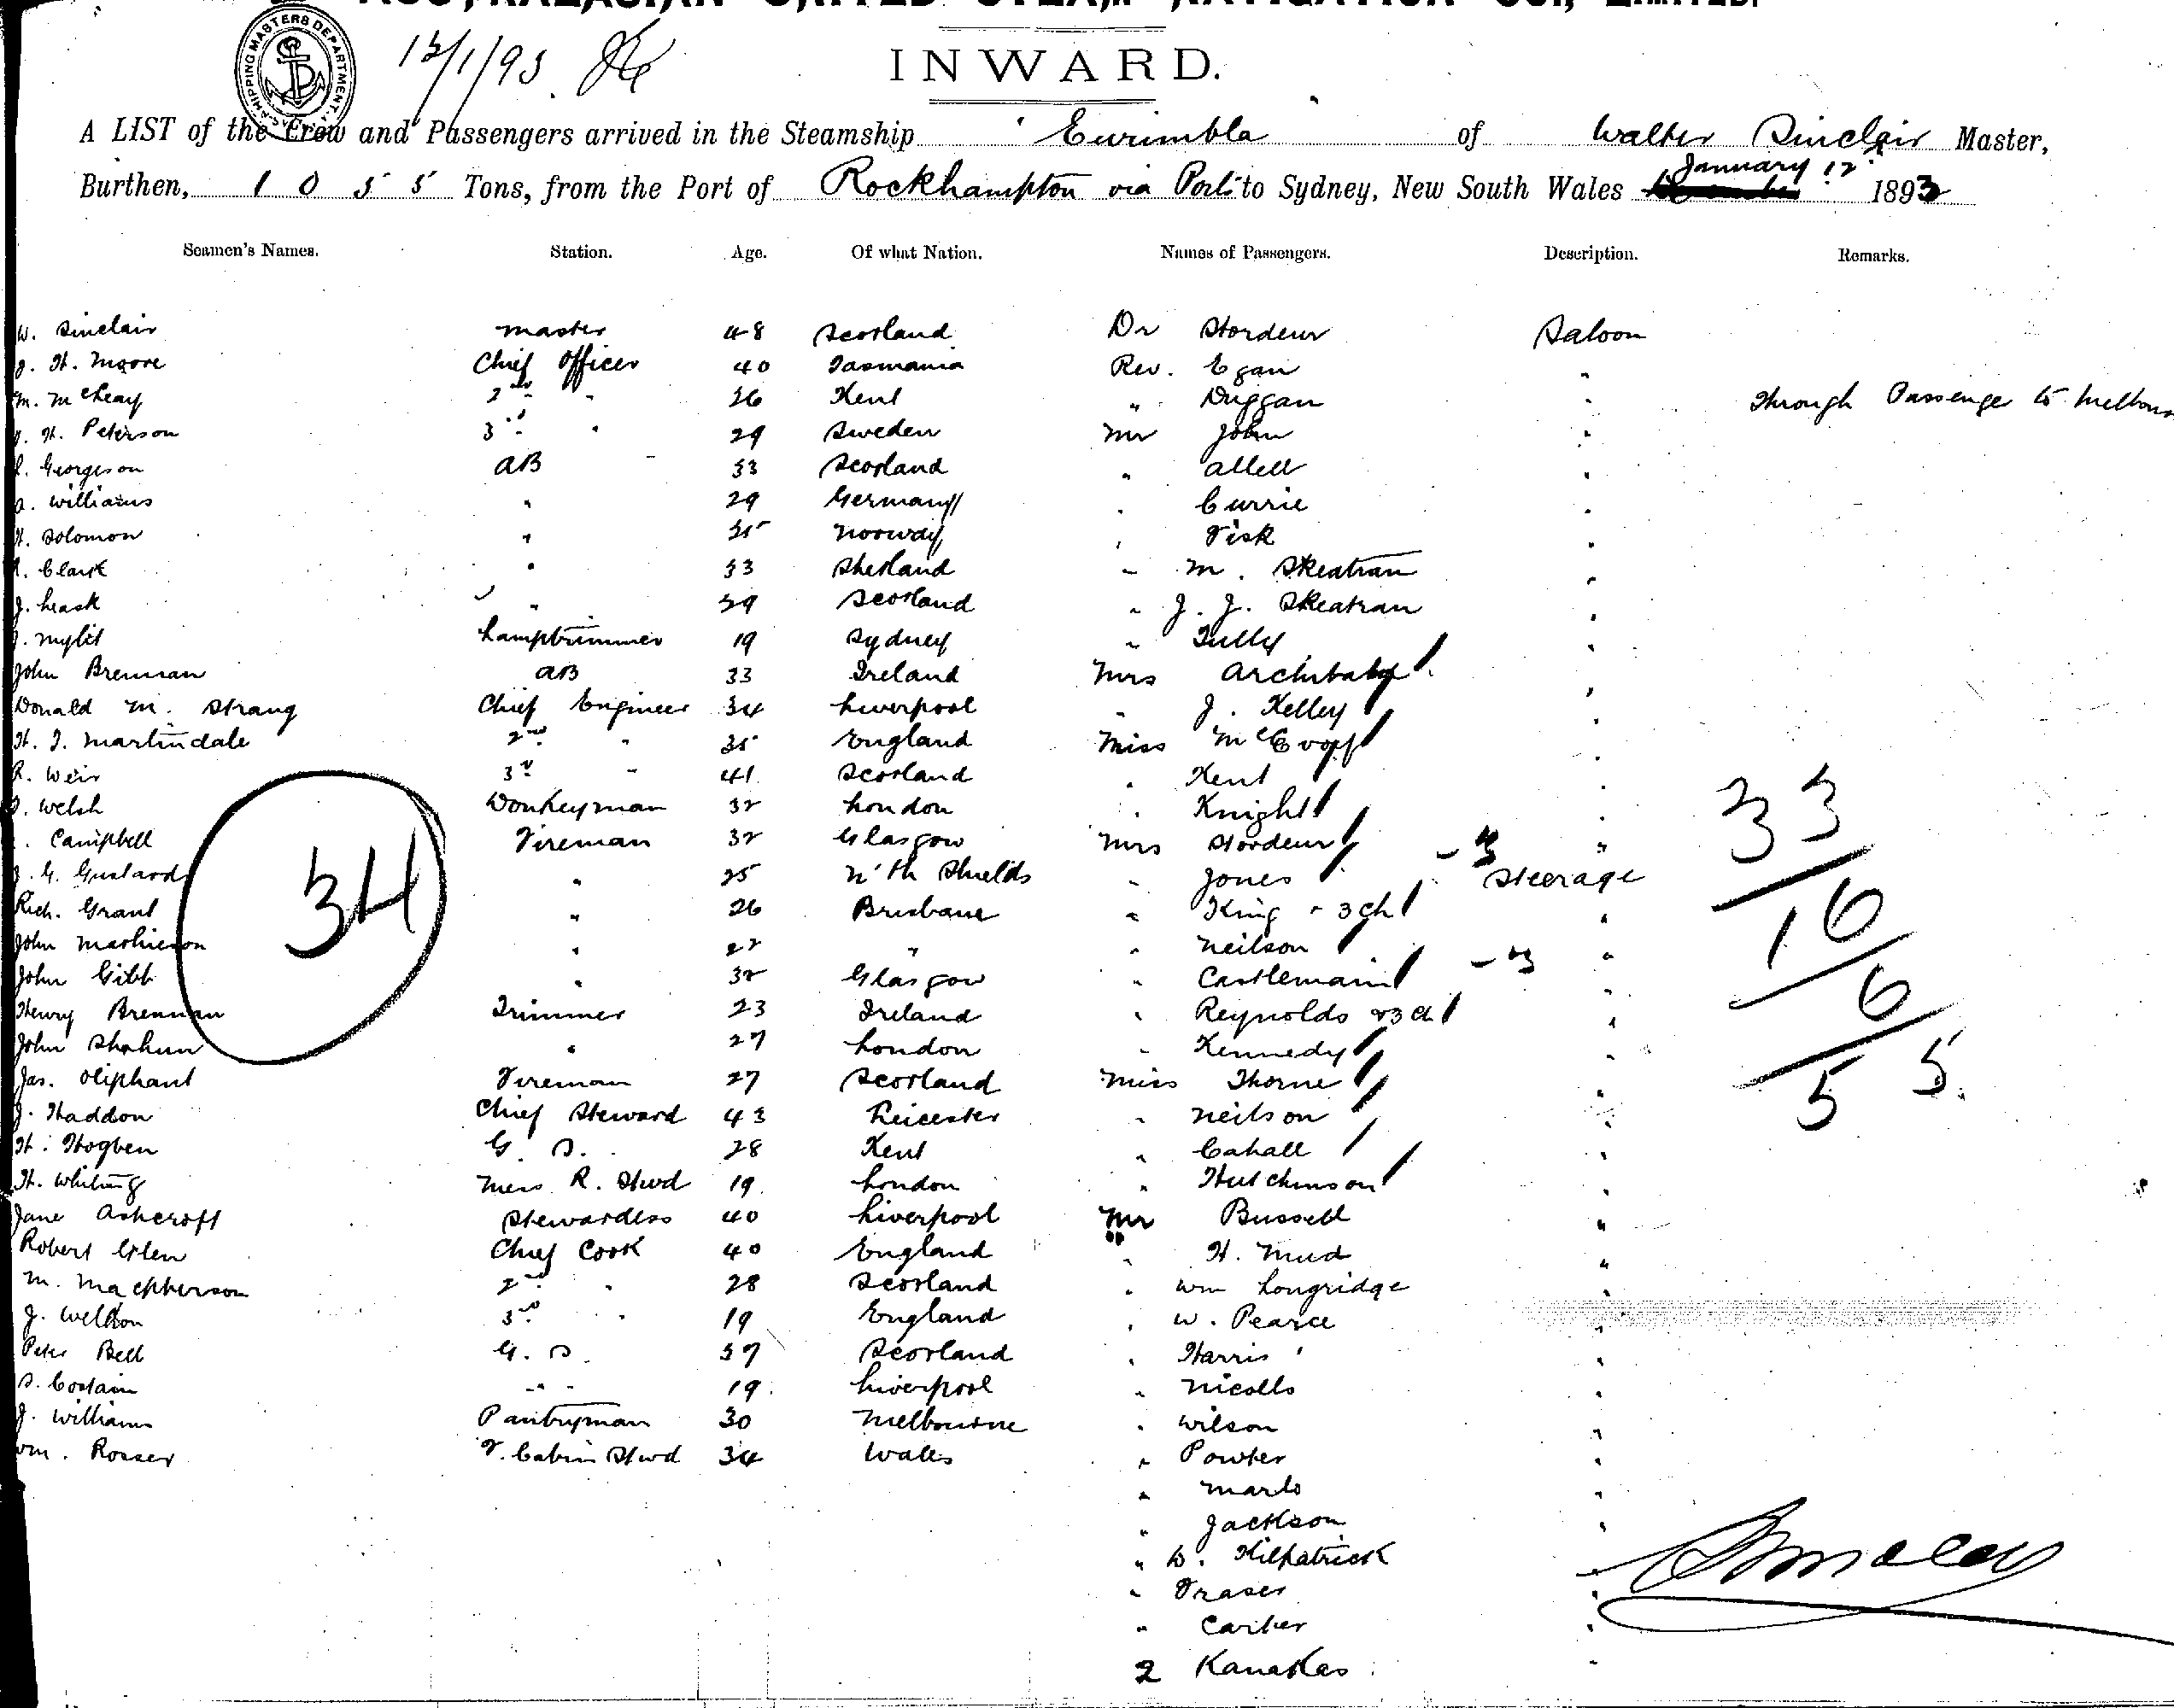 AUSTRALASIAN UNITED STEAM NAVIGATION CO., LIMITED.
SHIPPING MASTERS DEPARTMENT
12/1/93
INWARD.
A LIST of the Crew and Passengers arrived in the Steamship Eurimbla of Walter Sinclair Master,
Burthen, 1055 Tons, from the Port of Rockhampton via Ports to Sydney, New South Wales January 12 1893
Seamen's Names. Station. Age. Of what Nation. Names of Passengers. Description. Remarks.
W. Sinclair Master 48 Scotland Dr Stordeur Saloon
J. H. Moore Chief Officer 40 Tasmania Rev. Egan "
M. McLeay 2nd " 26 Kent " Duggan " Through Passenger to Melbourne
H. Peterson 3rd " 29 Sweden Mr John "
Georgeson AB 33 Scotland " Allell "
Williams " 29 Germany " Currie "
H. Solomon " 25 Norway " Fisk "
Clark " 33 Shetland " M. Skeatran "
J. Leask " 39 Scotland " J. J. Skeatran "
Mylit Lamptrimmer 19 Sydney " Tully "
John Brennan AB 33 Ireland Mrs Archibald "
Donald M. Strang Chief Engineer 34 Liverpool " J. Kelley "
H. J. Martindale 2nd " 35 England Miss "
R. Weir 3rd " 41 Scotland " Kent "
Welsh Donkeyman 32 London " Knight "
Campbell Fireman 32 Glasgow Mrs Stordeur "
J. G. Gustard " 25 N'th Shields " Jones Steerage
Rich. Grant " 26 Brisbane " King & 3 ch "
John Mathieson " 22 " " Neilson "
John Gibb " 32 Glasgow " Castlemain "
Henry Brennan Trimmer 23 Ireland " Reynolds & 3 ch "
John " 27 London " Kennedy "
Jas. Oliphant Fireman 27 Scotland Miss Thorne "
J. Haddon Chief Steward 43 Leicester " Neilson "
H. Hogben G. S. 28 Kent " Cahall "
H. Whiting Mess R. Stwd 19 London " Hutchinson "
Jane Ashcroft Stewardess 40 Liverpool Mr Bussell "
Robert Glen Chief Cook 40 England " H. Mud "
M. Macpherson 2nd " 28 Scotland " Wm Longridge "
J. Weldon 3rd " 19 England " W. Pearce "
Peter Bell G. S. 37 Scotland " Harris "
S. Costain " " 19 Liverpool " Nicolls "
J. Williams Pantryman 30 Melbourne " Wilson "
Wm. Rosser F. Cabin Stwd 34 Wales " Powter "
" Marls "
" Jackson "
" W. Kilpatrick
" Fraser "
" Carter "
2 Kanakas "
34
33
16
6
55